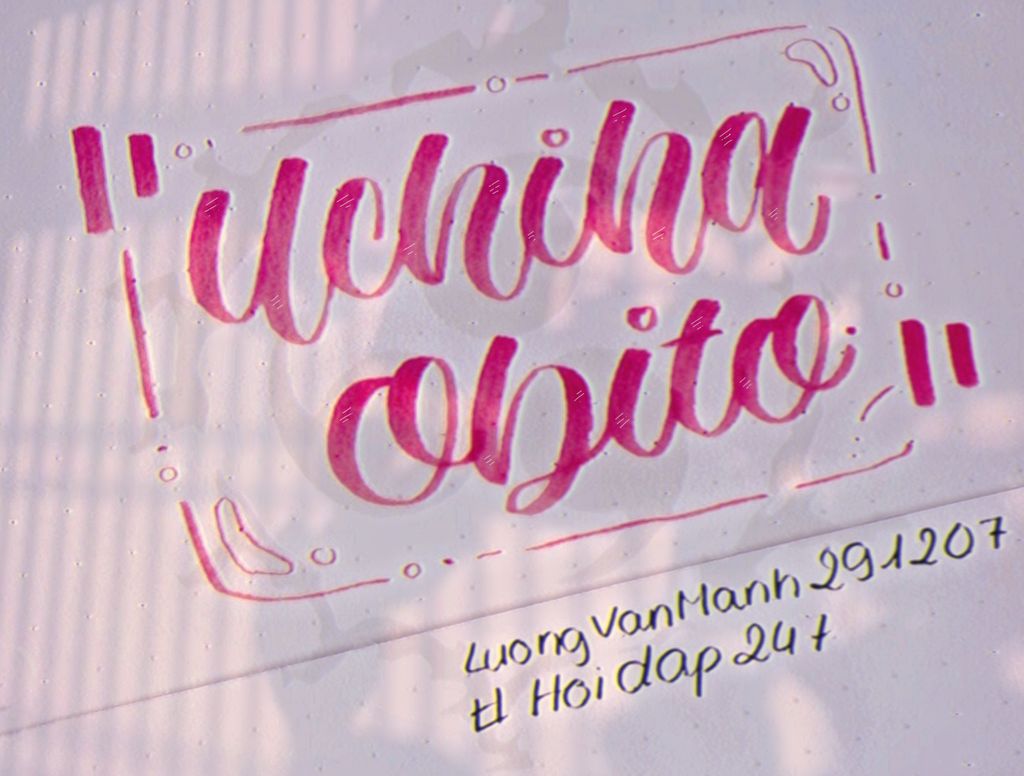 "Uchiha
Obito"
LuongVanManh291207
# Hoidap247